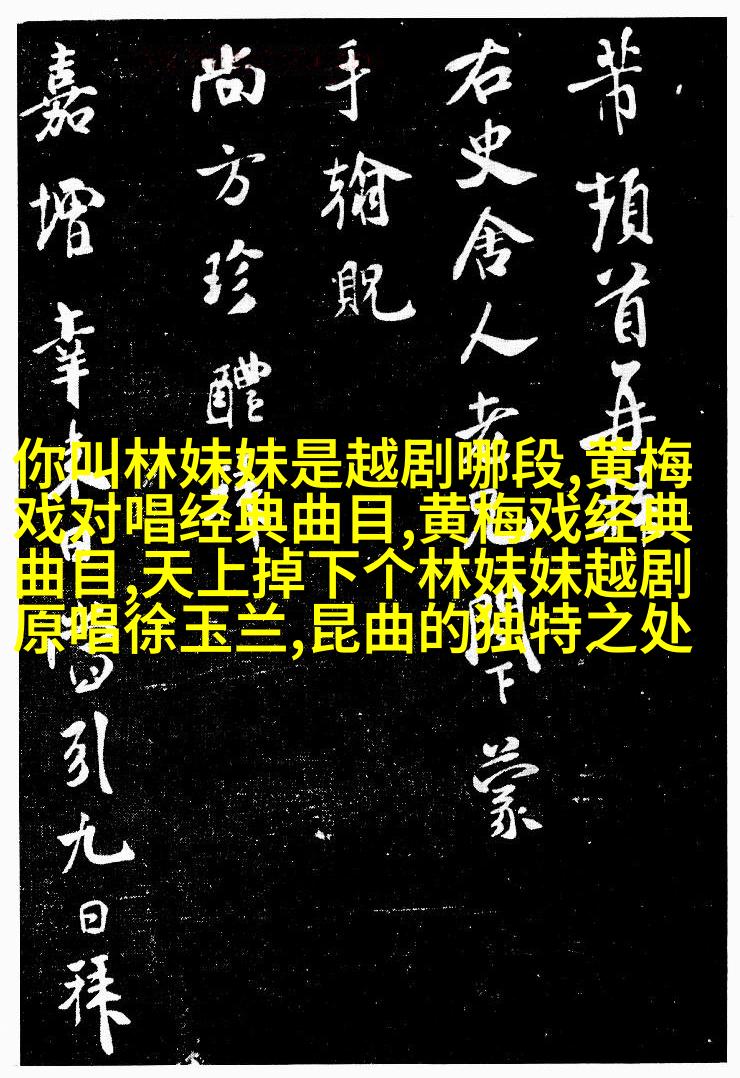 芾頓首再
右史舍人老兄下蒙
手翰貺
尚方珍醴
嘉增幸未由引九日拜
你叫林妹妹是越剧哪段,黄梅
戏对唱经典曲目,黄梅戏经典
曲目,天上掉下个林妹妹越剧
原唱徐玉兰,昆曲的独特之处